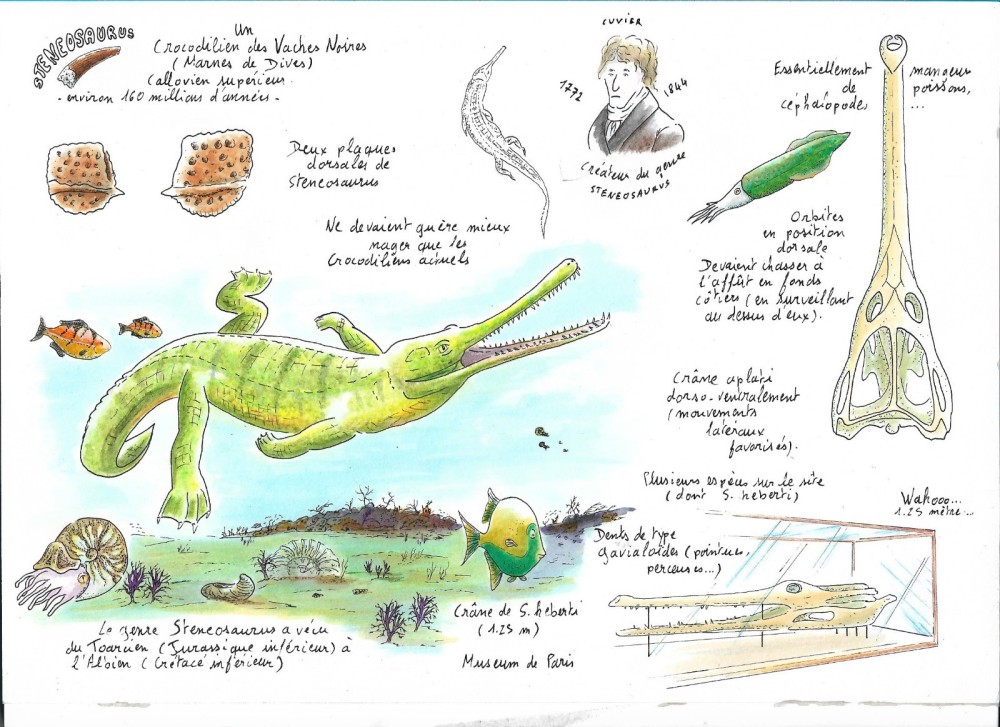 STENEOSAURUS
Un
Crocodilien des Vaches Noires
(Marnes de Dives)
Callovien supérieur.
- environ 160 millions d'années -
CUVIER
1772
1844
Créateur du genre
STENEOSAURUS
Essentiellement mangeurs
de poissons,
céphalopodes ...
Deux plaques
dorsales de
Steneosaurus
Ne devaient guère mieux
nager que les
Crocodiliens actuels
Orbites
en position
dorsale
Devaient chasser à
l'affût en fonds
côtiers (en surveillant
au dessus d'eux).
Crâne aplati
dorso-ventralement
(mouvements
latéraux
favorisés).
Plusieurs espèces sur le site
(dont S. heberti)
Wahooo...
1.25 mètre...
Dents de type
gavialoïdes (pointues,
perceuses...)
Crâne de S. heberti
(1.25 m)
Museum de Paris
Le genre Steneosaurus a vécu
du Toarcien (Jurassique inférieur) à
l'Albien (Crétacé inférieur)